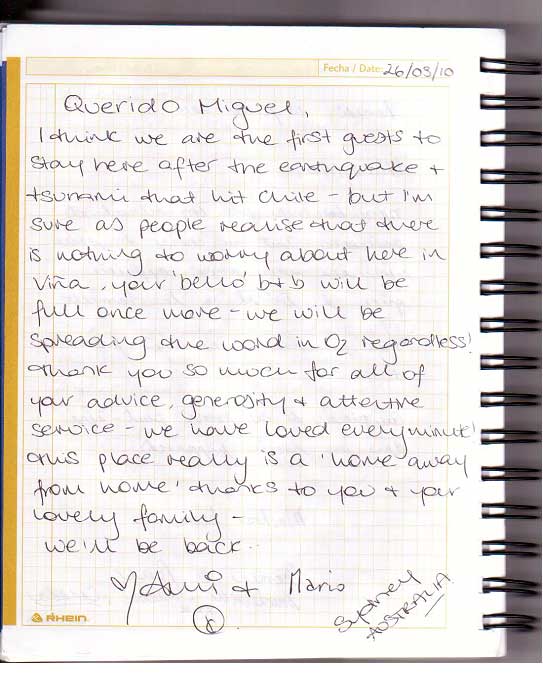 Fecha / Date: 26/03/10
Querido Miguel,
I think we are the first guests to
stay here after the earthquake +
tsunami that hit Chile - but I'm
sure as people realise that there
is nothing to worry about here in
Viña, your 'bello' b+b will be
full once more - we will be
spreading the word in Oz regardless!
thank you so much for all of
your advice, generosity + attentive
service - we have loved every minute!
this place really is a 'home away
from home' thanks to you + your
lovely family -
we'll be back..
+ Mario
x
Sydney
AUSTRALIA
RHEIN